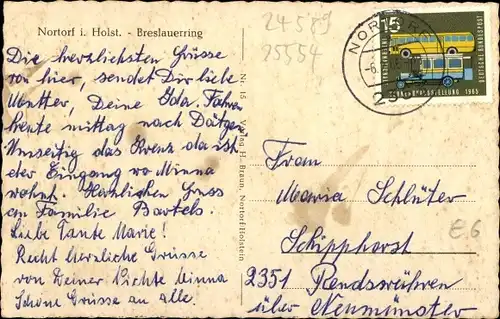 Nortorf i. Holst. - Breslauerring
24589
25554
NORTORF
15
DEUTSCHE BUNDESPOST
AUSSTELLUNG 1965
Die herzlichsten Grüsse
von hier, sendet Dir liebe
Mutter, Deine Ida. Fahren
heute mittag nach Dätgen
Umseitig das Kreuz da ist
der Eingang wo Minna
wohnt. Herzlichen Gruss
an Familie Bartels.
Liebe Tante Marie!
Recht herzliche Grüsse
von Deiner Nichte Minna
Schöne Grüsse an alle.
Nr. 15 Verlag H. Braun, Nortorf/Holstein
Frau
Maria Schlüter
Schipphorst
2351 Rendswühren
über Neumünster
E6